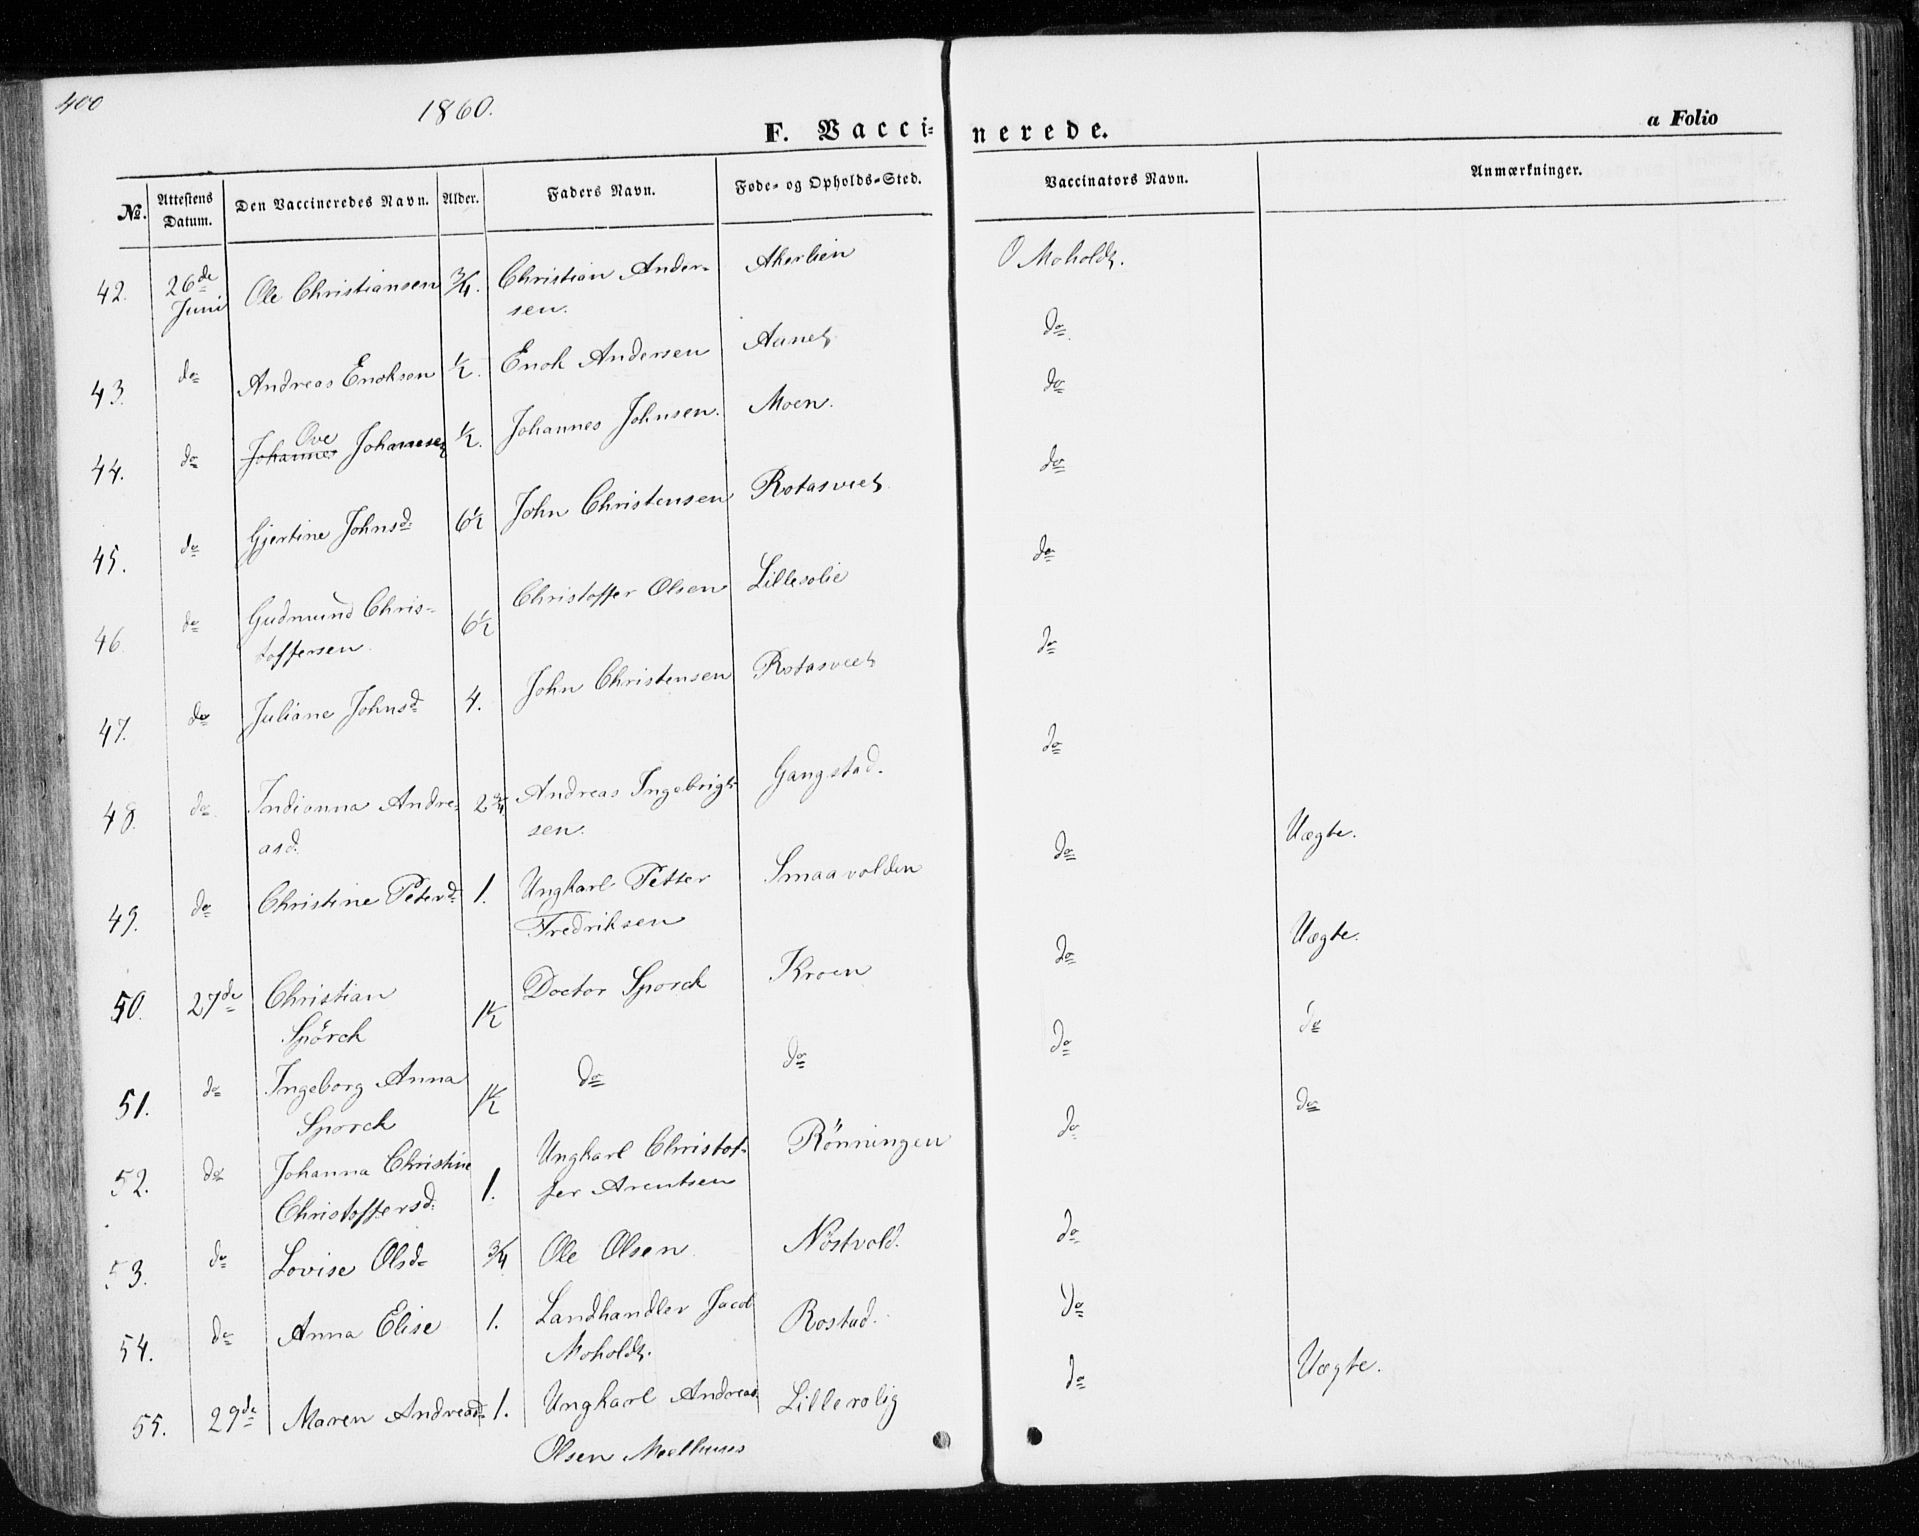 400
1860.
F. Vaccinerede.
a Folio
No. Attestens Datum. Den Vaccineredes Navn. Alder. Faders Navn. Føde- og Opholds-Sted. Vaccinators Navn. Anmærkninger.
42. 26de Juni Ole Christiansen 3/4. Christian Andersen. Akerlien O Moholdt.
43. do Andreas Enoksen 1/2. Enok Andersen Aunet do
44. do Johannes Ove Johannesen 1/2. Johannes Johnsen. Moen. do
45. do Gjertine Johnsd. 6 1/2 John Christensen Rotasveet do
46. do Gudmund Christoffersen 6 1/2 Christoffer Olsen Lillesolie do
47. do Juliane Johnsd 4. John Christensen Rotasveet do
48. do Indianna Andreasd. 2 3/4 Andreas Ingebrigtsen. Gangstad. do
49. do Christine Petersd. 1. Ungkarl Petter Fredriksen Smaavolden do Uægte.
50. 27de Christian Spörck 1 1/2 Doctor Sporck Kroen do Uægte.
51. do Ingeborg Anna Sporck 1 1/2 do do do do
52. do Johanna Christine Christoffersd. 1. Ungkarl Christoffer Arentsen Rönningen do do
53. do Lovise Olsd. 3/4 Ole Olsen Nöstvold. do
54. do Anna Elise 1. Landhandler Jacob Moholdt. Rostad. do
55. 29de Maren Andreasd. 1. Ungkarl Andreas Olsen Meelhuus Lillerolig do Uægte.